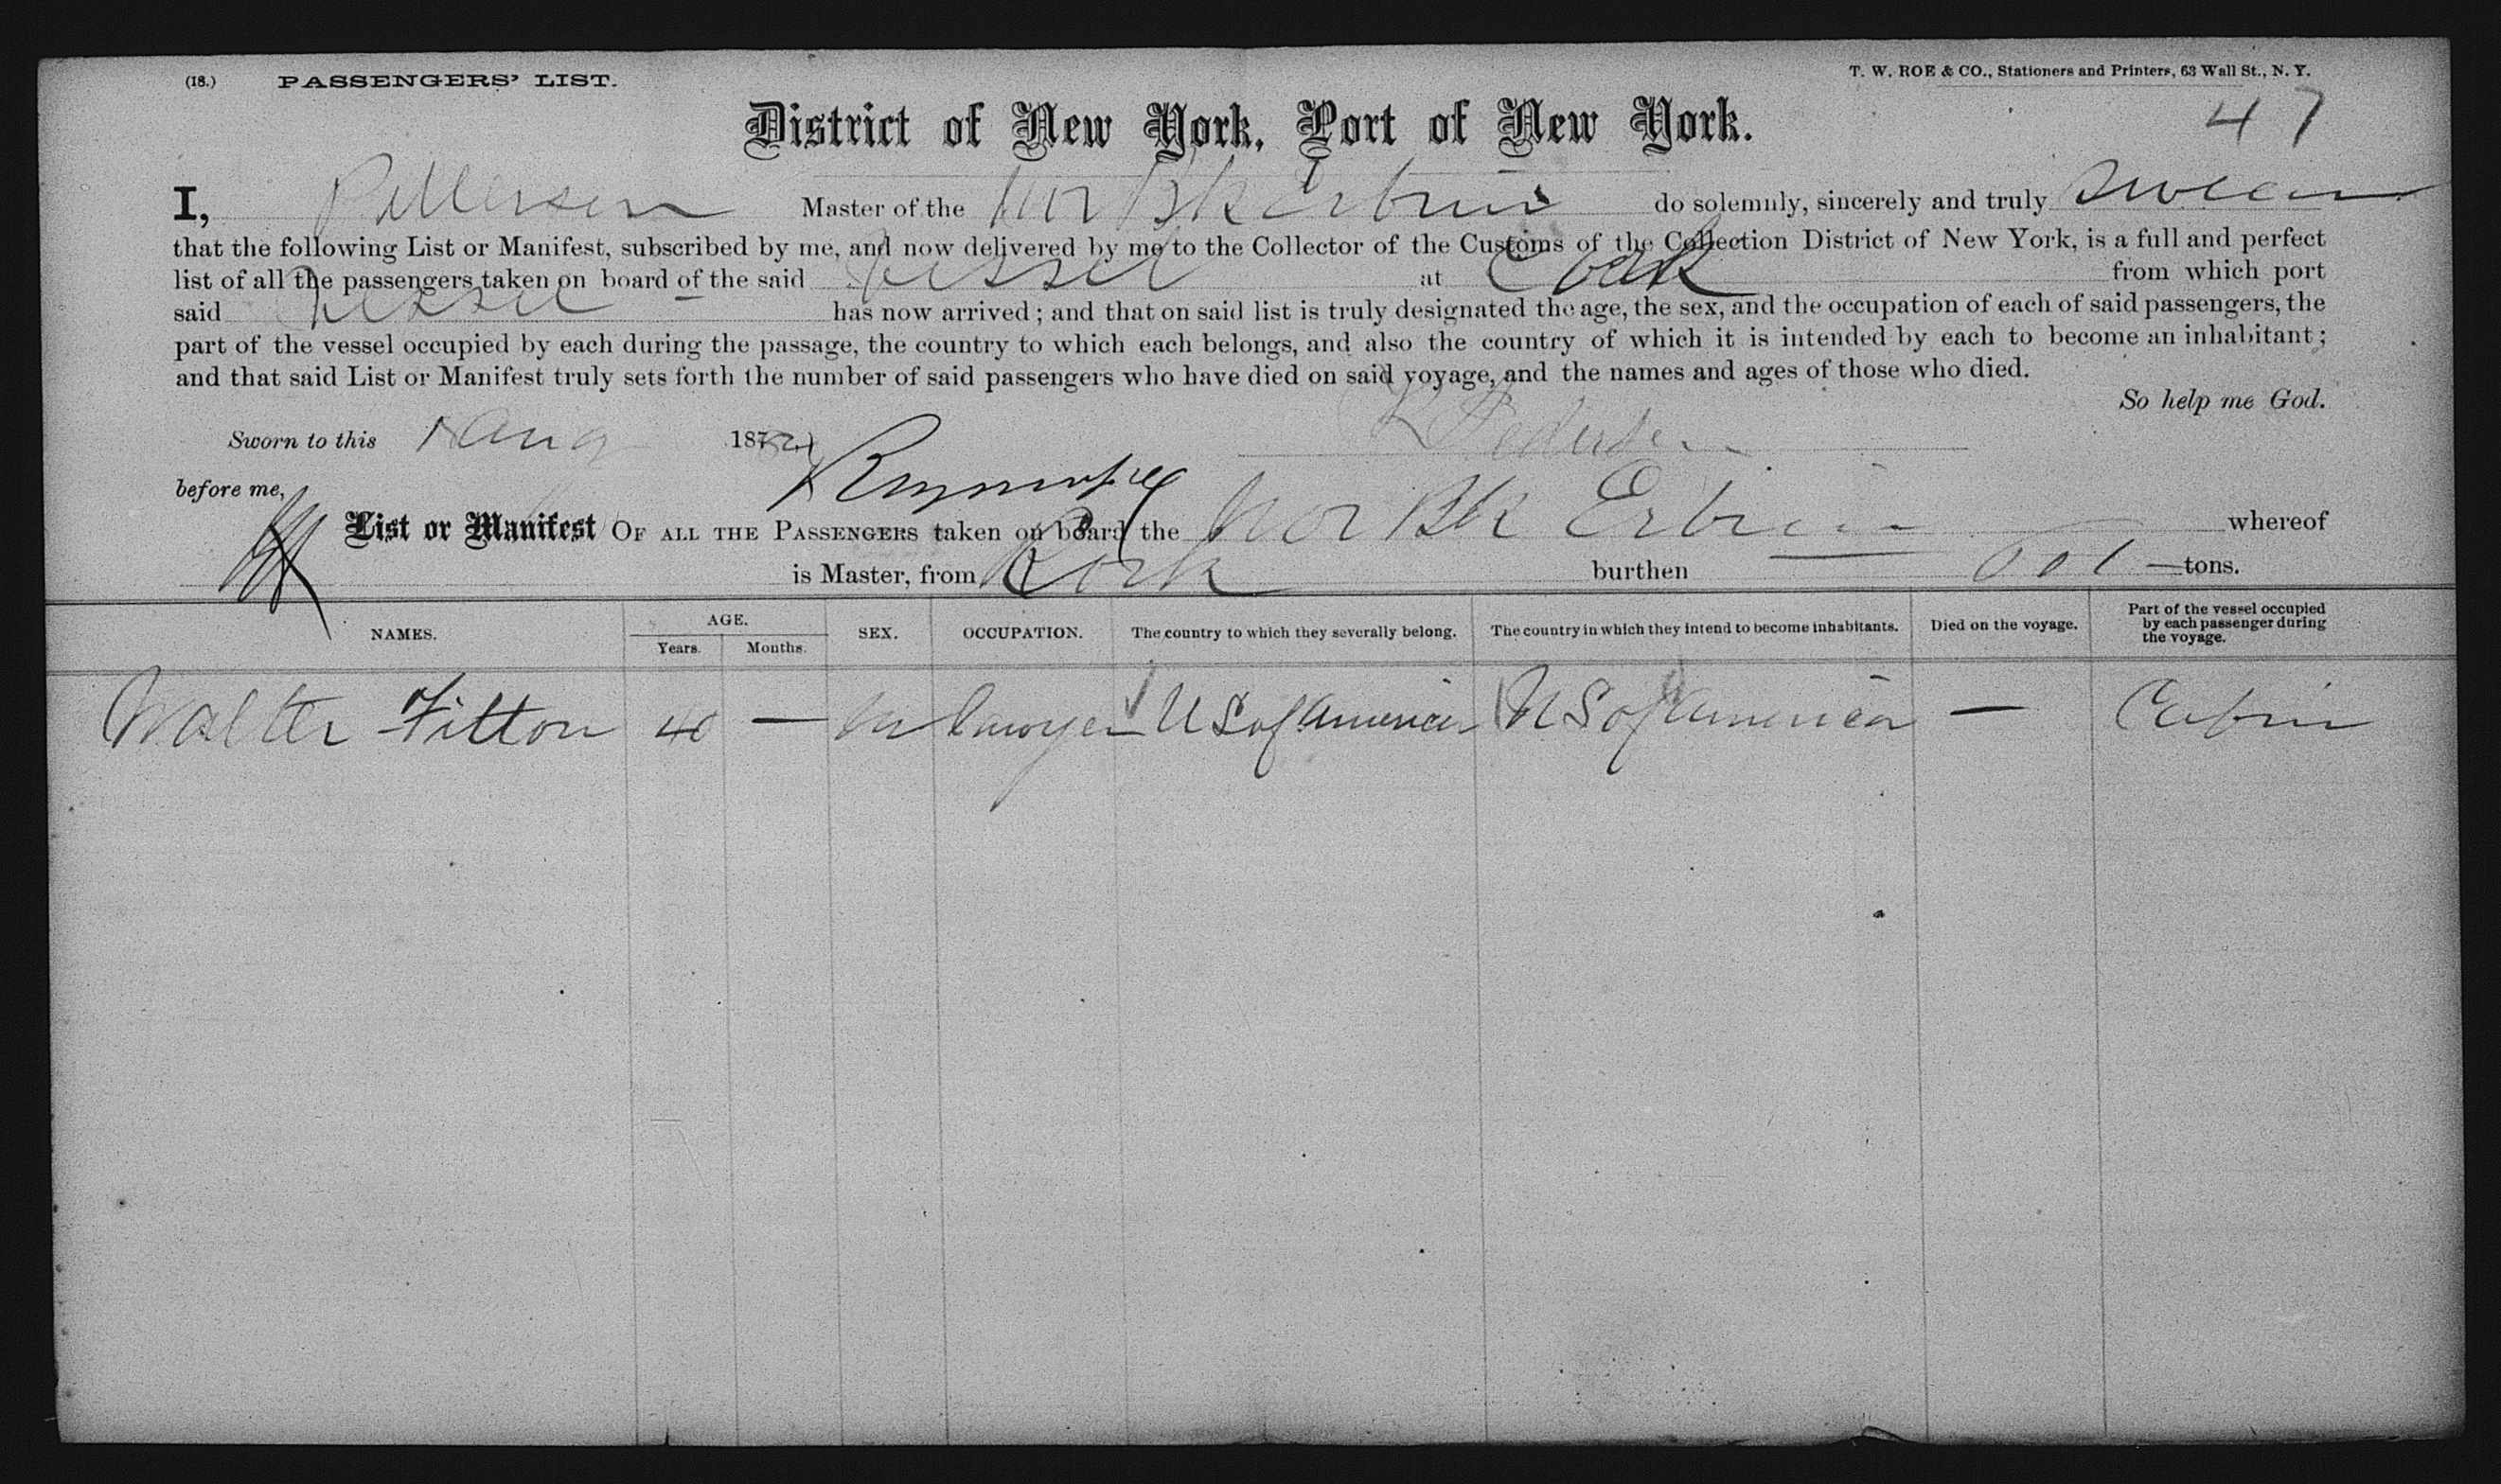 (18.) PASSENGERS' LIST. T. W. ROE & CO., Stationers and Printers, 63 Wall St., N. Y.
47
District of New York, Port of New York.
I, Pettersen Master of the Nor Bk Erbrin do solemnly, sincerely and truly swear
that the following List or Manifest, subscribed by me, and now delivered by me to the Collector of the Customs of the Collection District of New York, is a full and perfect
list of all the passengers taken on board of the said Vessel at Cork from which port
said Vessel has now arrived; and that on said list is truly designated the age, the sex, and the occupation of each of said passengers, the
part of the vessel occupied by each during the passage, the country to which each belongs, and also the country of which it is intended by each to become an inhabitant;
and that said List or Manifest truly sets forth the number of said passengers who have died on said voyage, and the names and ages of those who died.
So help me God.
Sworn to this 1 Aug 187 Pedersen
before me,
List or Manifest OF ALL THE PASSENGERS taken on board the Nor Bk Erbrin whereof
is Master, from Cork burthen tons.
NAMES. AGE. SEX. OCCUPATION. The country to which they severally belong. The country in which they intend to become inhabitants. Died on the voyage. Part of the vessel occupied by each passenger during the voyage.
Years. Months.
Walter Fitton 40 — M Lawyer U S of America U S of America — Cabin